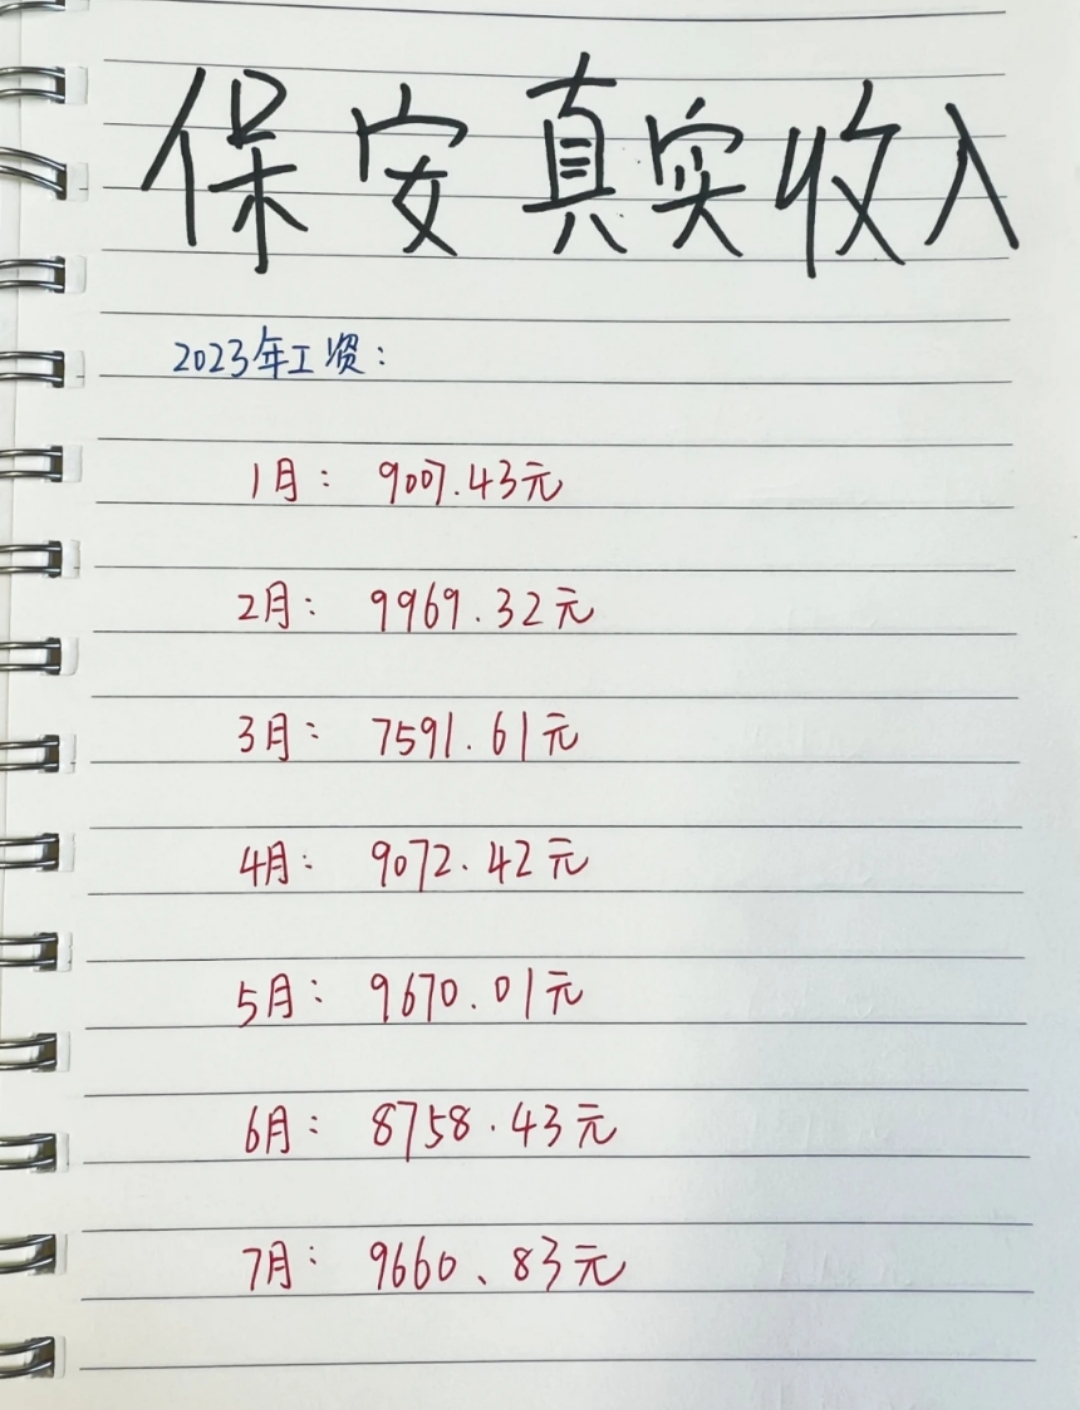 保安真实收入
2023年工资:
1月: 9007.43元
2月: 9969.32元
3月: 7591.61元
4月: 9072.42元
5月: 9670.01元
6月: 8758.43元
7月: 9660、83元